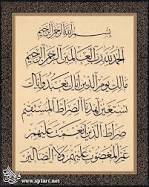 بسم الله الرحمن الرحيم
الحمد لله رب العالمين الرحمن الرحيم
مالك يوم الدين إياك نعبد وإياك
نستعين اهدنا الصراط المستقيم
صراط الذين أنعمت عليهم
غير المغضوب عليهم ولا الضالين